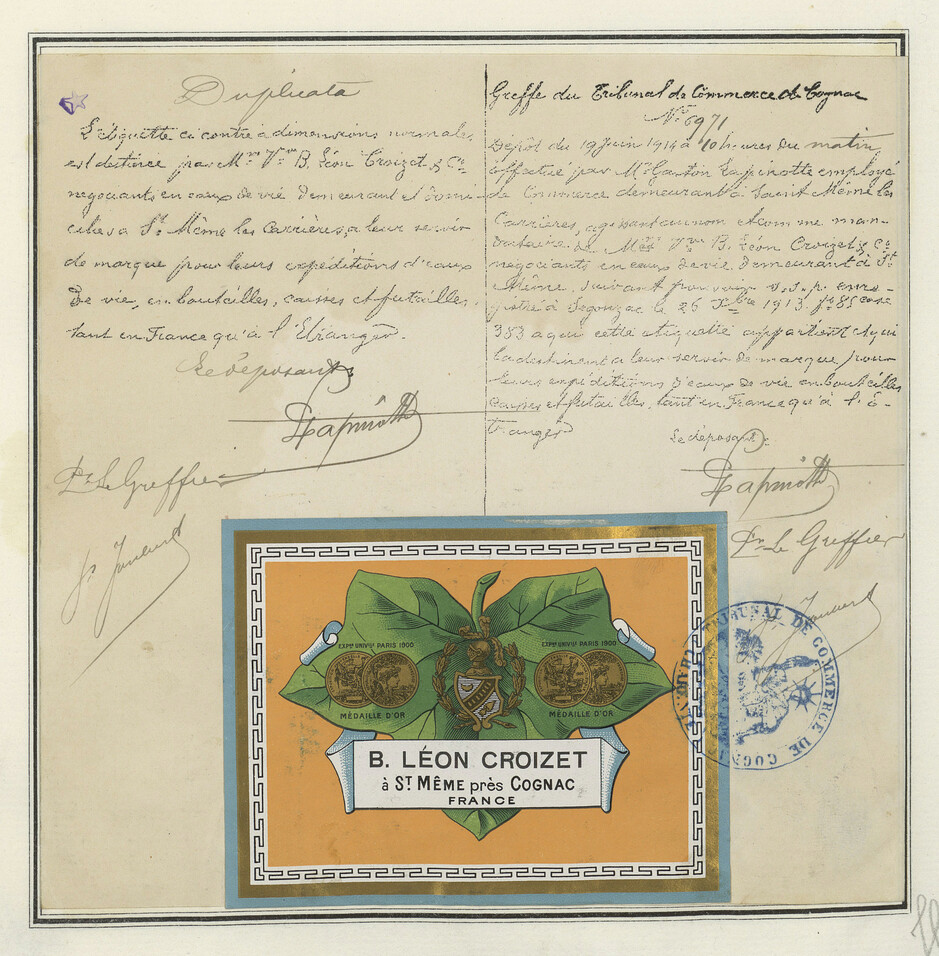 Duplicata
L'étiquette ci contre à dimensions normales
est destinée par Mme Vve B. Léon Croizet & Cie
négociants en eaux de vie demeurant et domi-
ciliés à St Même les Carrières, a leur servir
de marque pour leurs expéditions d'eaux
de vie, en bouteilles, caisses et futailles,
tant en France qu'à l'Etranger.
Le déposant:
Lapinotte
Pr Le Greffier
Greffe du Tribunal de Commerce de Cognac
No 6971
Dépôt du 19 Juin 1914 à 10 heures du matin,
effectué par Mr Gaston Lapinotte employé
de Commerce demeurant à Saint Même les
Carrières, agissant au nom et comme man-
dataire de Vve B. Léon Croizet & Cie
négociants en eaux de vie demeurant à St
Même, suivant pouvoir s.s.p. enre-
gistré à Segonzac le 26 Xbre 1913 fo 85 case
383 a qui cette étiquette appartient et qui
la destinent a leur servir de marque pour
leurs expéditions d'eaux de vie en bouteilles
caisses et futailles, tant en France qu'à l'é-
tranger
Le déposant:
Lapinotte
Pr Le Greffier
EXPON UNIVLLE PARIS 1900
MÉDAILLE D'OR
EXPON UNIVLLE PARIS 1900
MÉDAILLE D'OR
B. LÉON CROIZET
à ST. MÊME près COGNAC
FRANCE
TRIBUNAL DE COMMERCE DE COGNAC